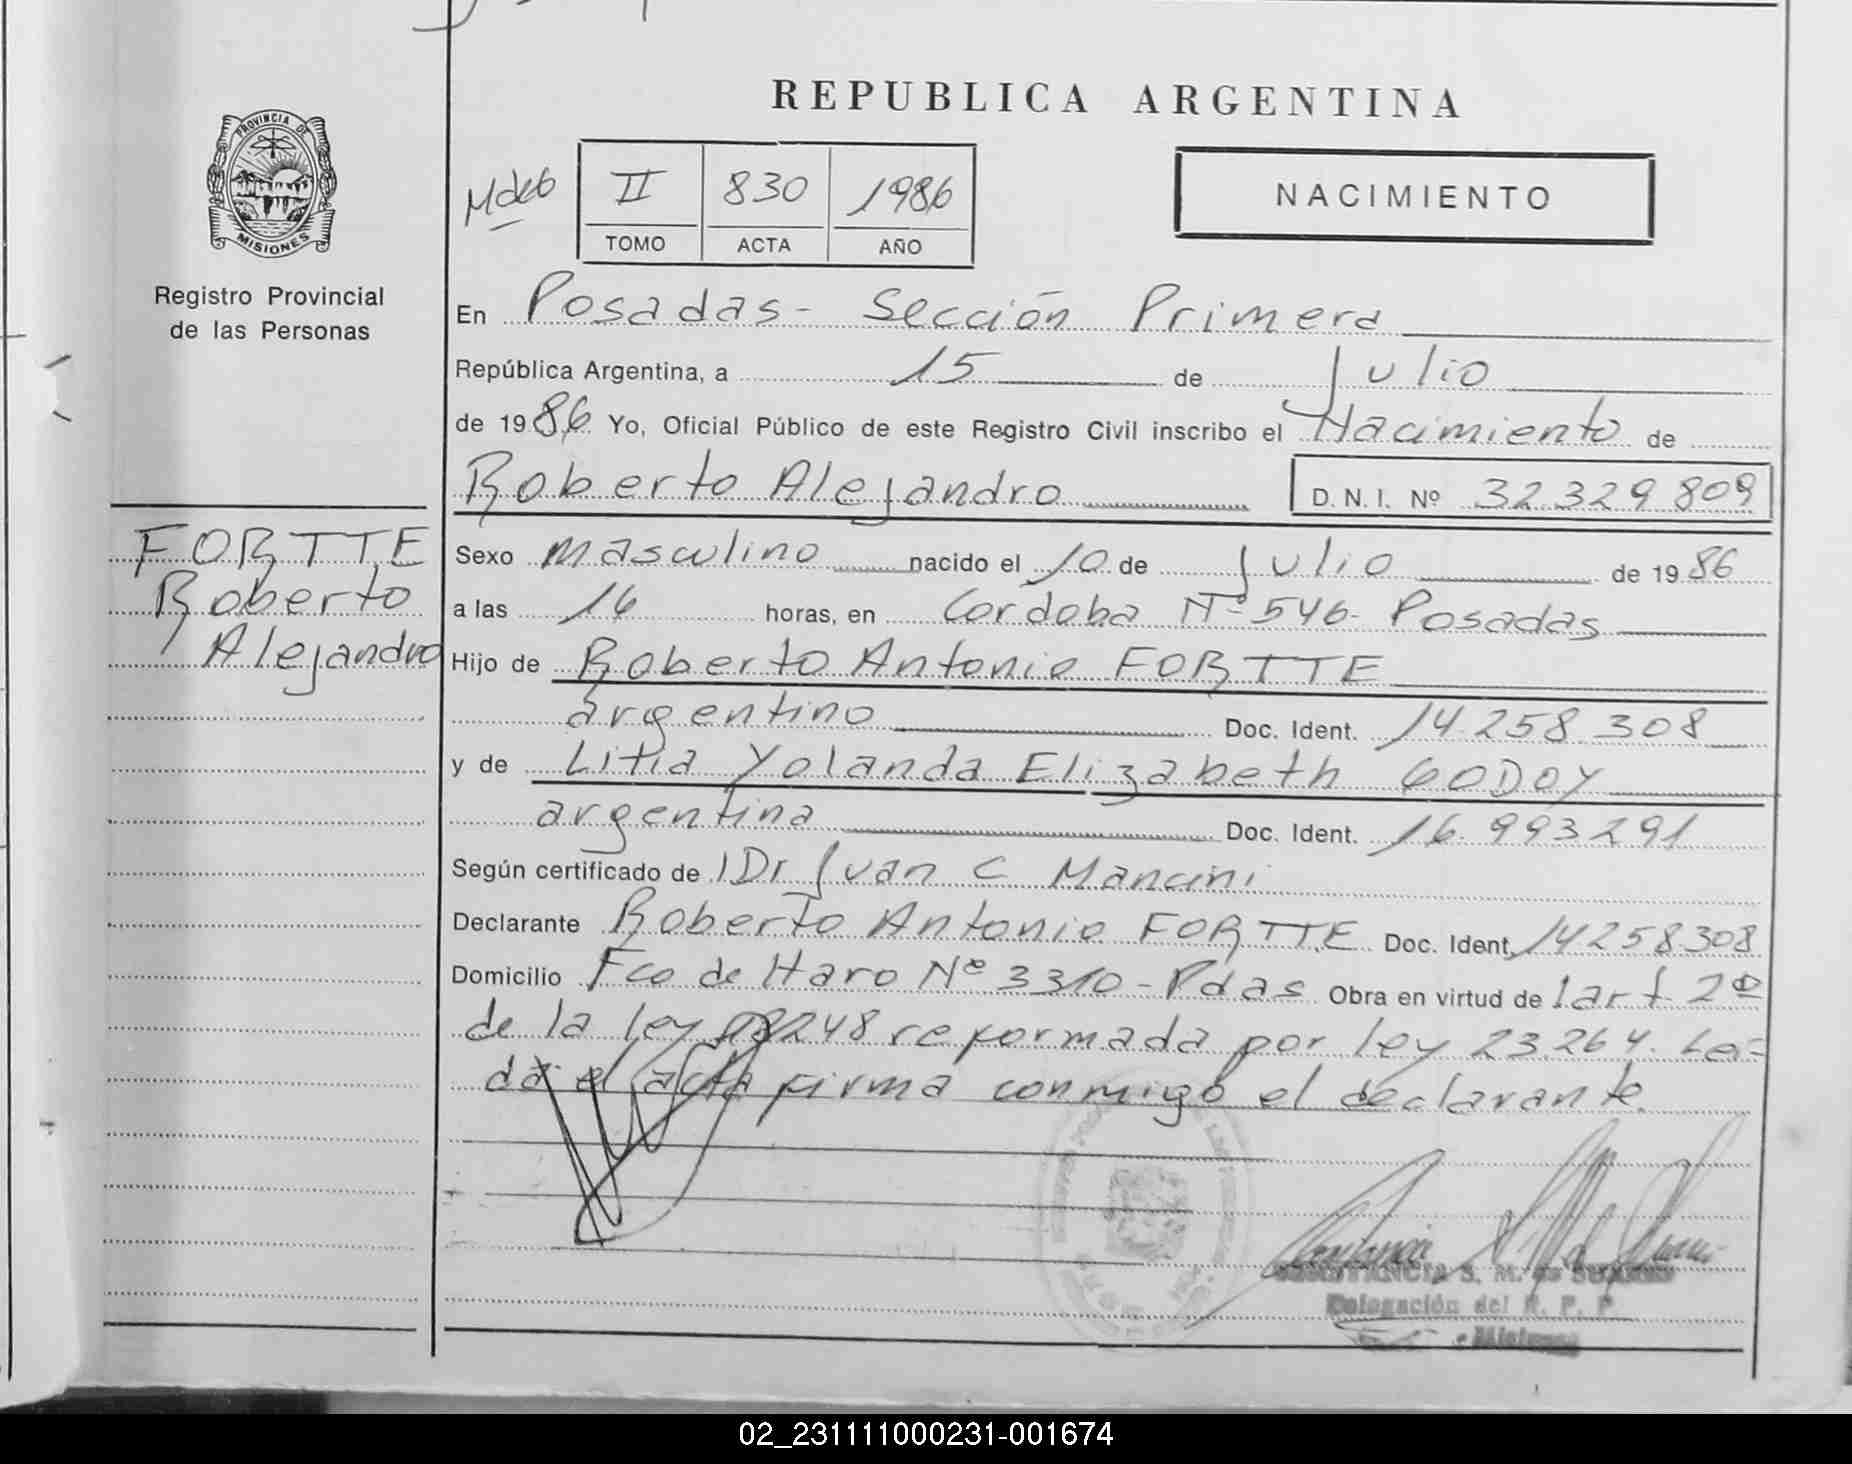 REPUBLICA ARGENTINA
PROVINCIA DE
MISIONES
Registro Provincial
de las Personas
II 830 1986
TOMO ACTA AÑO
NACIMIENTO
En Posadas - Sección Primera
República Argentina, a 15 de Julio
de 1986 Yo, Oficial Público de este Registro Civil inscribo el Nacimiento de
Roberto Alejandro D.N.I. Nº 32.329.809
FORTTE
Roberto
Alejandro
Sexo masculino nacido el 10 de Julio de 1986
a las 16 horas, en Cordoba Nº 546- Posadas
Hijo de Roberto Antonio FORTTE
argentino Doc. Ident. 14.258.308
y de Litia Yolanda Elizabeth GODOY
argentina Doc. Ident. 16.993291
Según certificado de Dr Juan C Mancini
Declarante Roberto Antonio FORTTE Doc. Ident. 14258308
Domicilio Fco de Haro Nº 3310-Pdas Obra en virtud de art 2º
de la ley 18248 reformada por ley 23.264. Lei=
da el acta firma conmigo el declarante.
S. M. de
Delegación del R. P. P.
Misiones
02_231111000231-001674